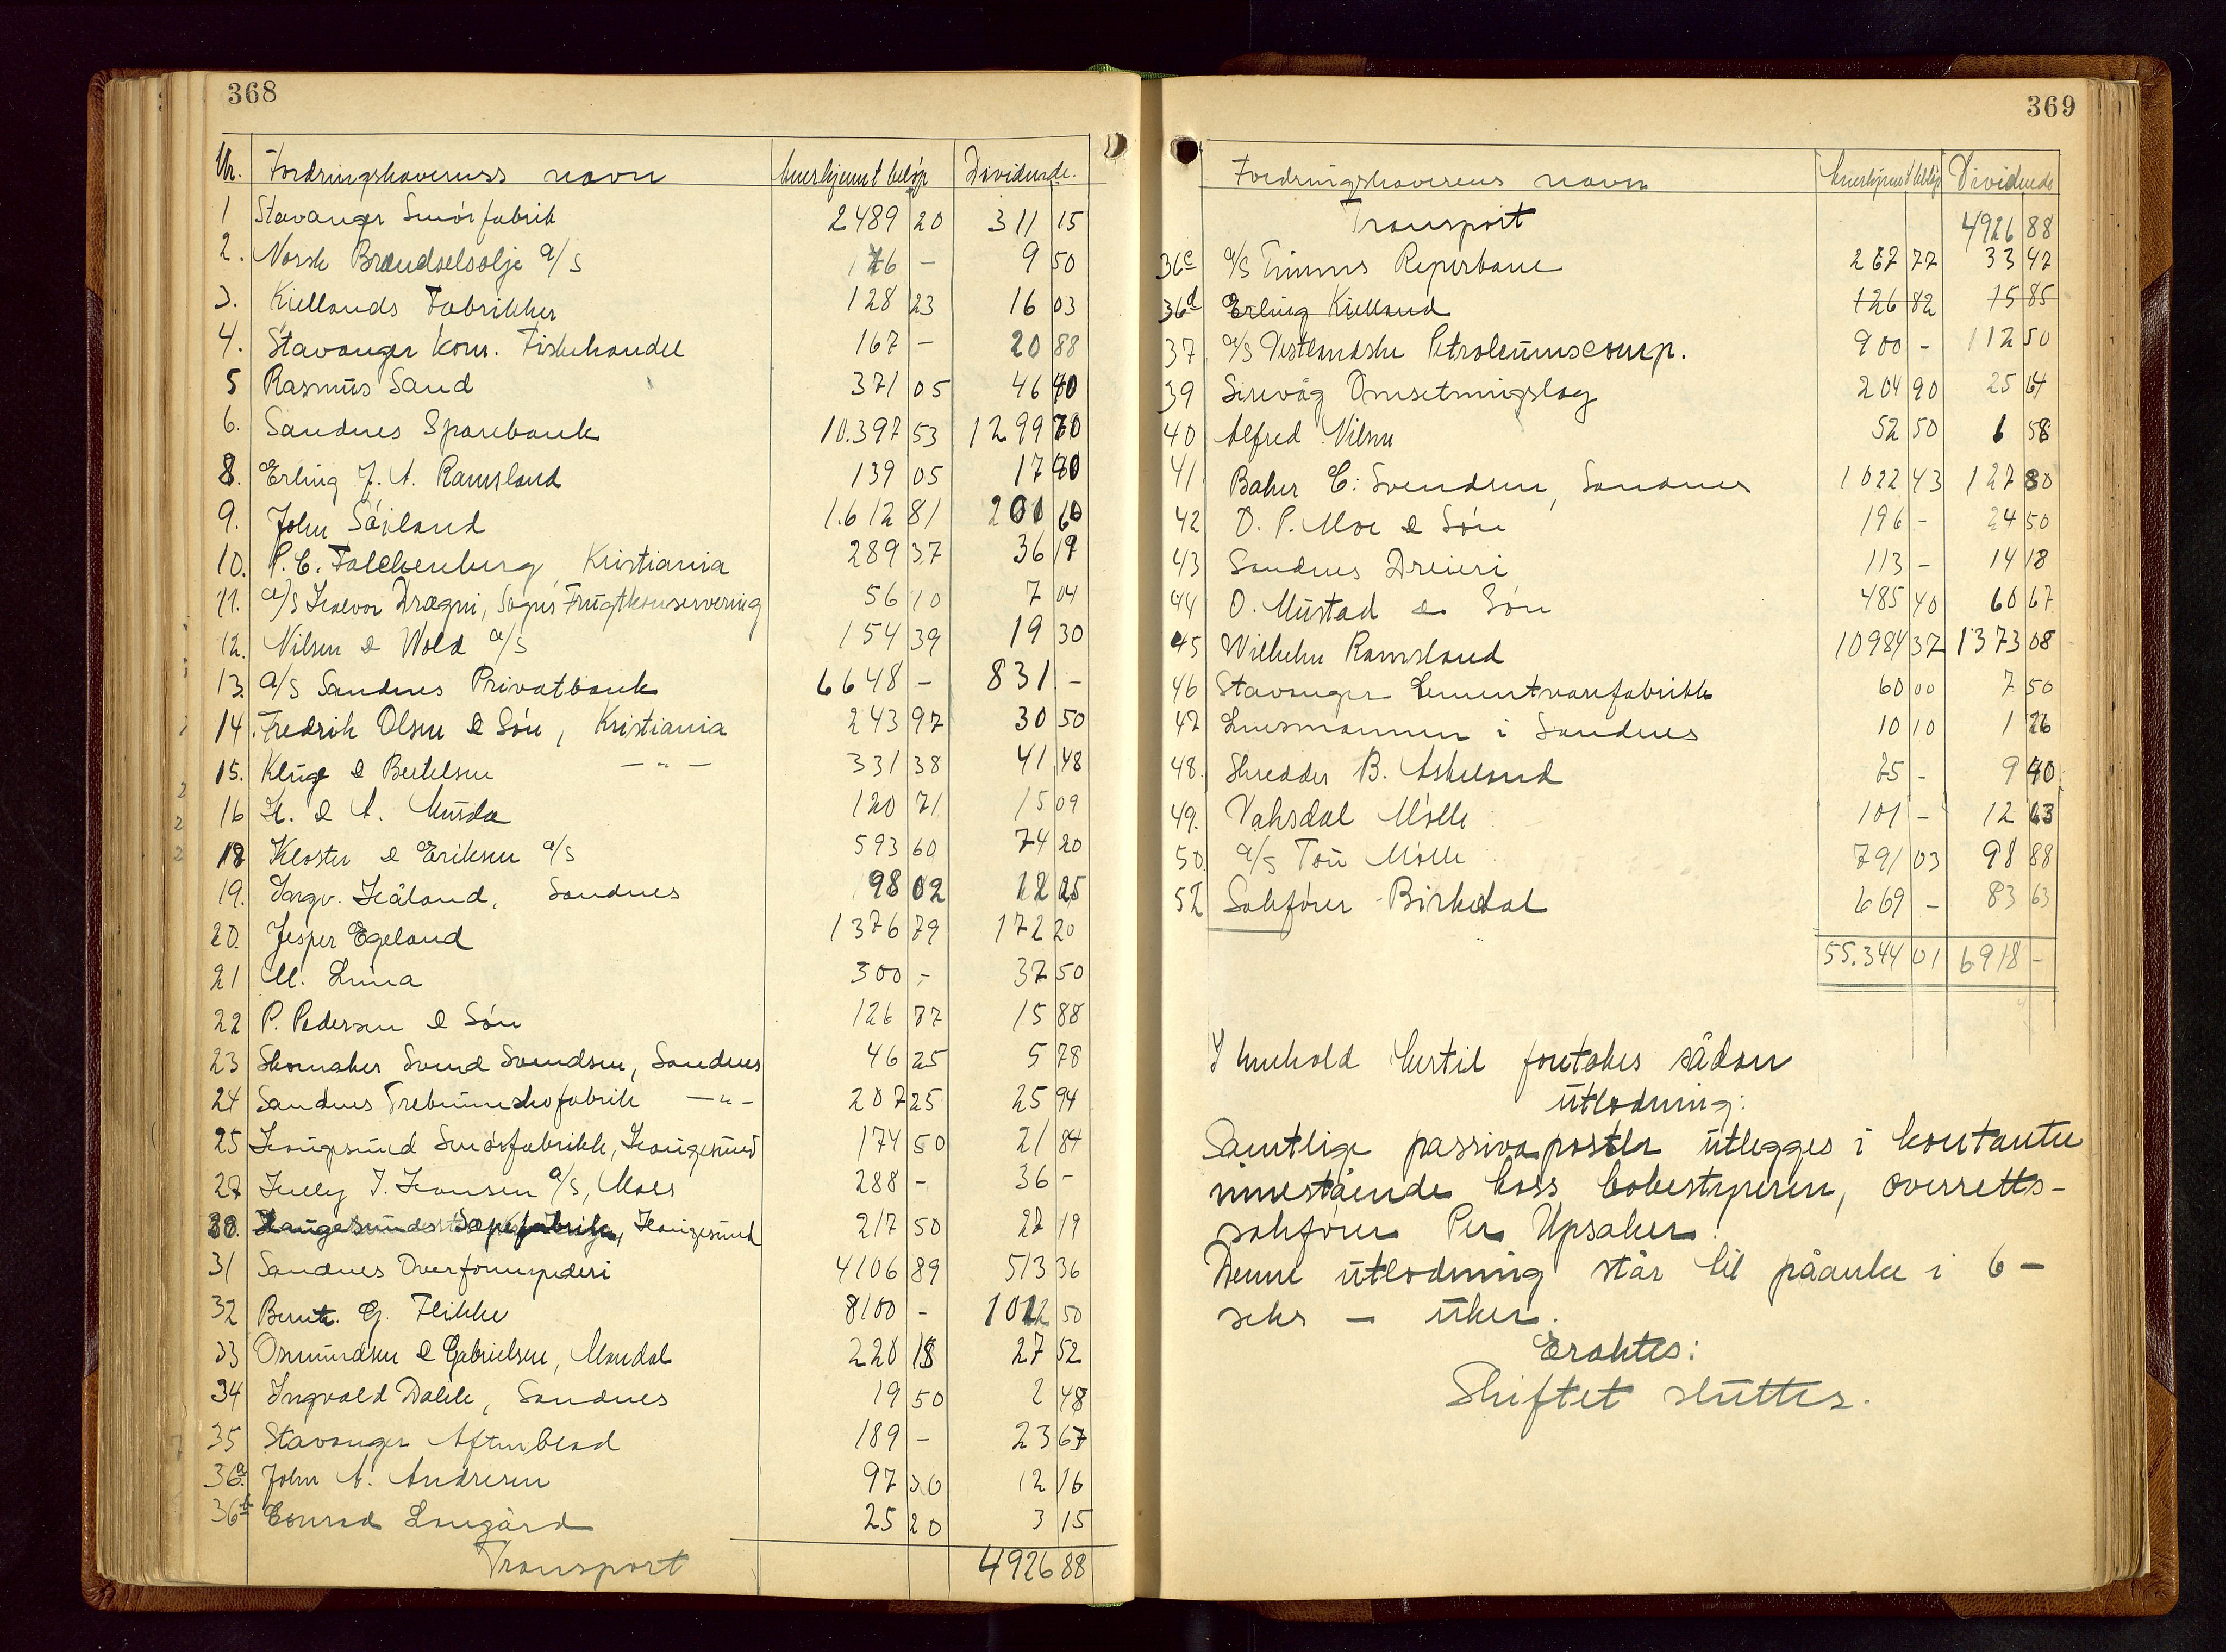 368
Nr. Fordringshaverens navn Anerkjent beløp Dividende.
1 Stavanger Smørfabrik 2489 20 311 15
2. Norsk Brændselsolje A/S 76 - 9 50
3. Kiellands Fabrikker 128 23 16 03
4. Stavanger kom. Fiskehandel 167 - 20 88
5 Rasmus Sand 371 05 46 40
6. Sandnes Sparebank 10.397 53 1299 70
8. Erling J. A. Ramsland 139 05 17 40
9. John Søiland 1.612 81 201 60
10. P. C. Falchenburg, Kristiania 289 37 36 19
11. A/S Halvor Drægni, Sogns Frugtkonservering 56 10 7 04
12. Nilsen & Wold A/S 154 39 19 30
13. A/S Sandnes Privatbank 6648 - 831 -
14. Fredrik Olsen & Søn, Kristiania 243 97 30 50
15. Kluge & Bertelsen —"— 331 38 41 48
16 H. & A. Munda 120 71 15 09
18 Kloster & Eriksen A/S 593 60 74 20
19. Ingv. Håland, Sandnes 98 02 12 25
20. Jesper Egeland 1376 79 172 20
21 M. Lima 300 - 37 50
22 P. Pedersen & Søn 126 77 15 88
23 Skomaker Svend Svendsen, Sandnes 46 25 5 78
24 Sandnes Trebundskofabrik —"— 207 25 25 94
25 Haugesund Smørfabrikk, Haugesund 174 50 21 84
27 Helly J. Hansen A/S, Moss 288 - 36 -
30. Haugesunds Sæpefabrik, Haugesund 217 50 27 19
31 Sandnes Overformynderi 4106 89 513 36
32 Bernt. G. Flikke 8100 - 1012 50
33 Osmundsen & Gabrielsen, Mandal 220 18 27 52
34 Ingvald Dahle, Sandnes 19 50 2 48
35 Stavanger Aftenblad 189 - 23 67
36a. John A. Andresen 97 30 12 16
36b Conrad Langård 25 20 3 15
Transport 4926 88
369
Fordringshaverens navn Anerkjent beløp Dividende
Transport 4926 88
36c A/S Timms Reperbane 267 77 33 47
36d Erling Kielland 126 82 15 85
37 A/S Vestlandske Petroleumscomp. 900 - 112 50
39 Sirevåg Omsetningslag 204 90 25 64
40 Alfred Nilsen 52 50 6 58
41 Baker C. Svendsen, Sandnes 1022 43 127 80
42 O. P. Moe & Søn 196 - 24 50
43 Sandnes Dreieri 113 - 14 18
44 O. Mustad & Søn 485 40 60 67
45 Wilhelm Ramsland 10984 37 1373 08
46 Stavanger Sementvarefabrikk 60 00 7 50
47 Lensmannen i Sandnes 10 10 1 26
48. Skredder B. Askeland 75 - 9 40
49. Vaksdal Mølle 101 - 12 63
50. A/S Tou Mølle 791 03 98 88
52 Sakfører Birkedal 669 - 83 63
55.344 01 6918 -
I henhold hertil foretakes sådan
utlodning:
Samtlige passivaposter utlegges i kontante
innestående hoss bobestyreren, overretts-
sakfører Per Upsaker.
Denne utlodning står til påanke i 6 -
seks - uker.
Eraktes:
Skiftet sluttes.